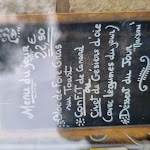 Menu du jour
22,50
Foie Gras
au Toast
Confit de Canard
Civet de Gésiers d'oie
(avec légumes du jour)
Dessert du Jour
Maison